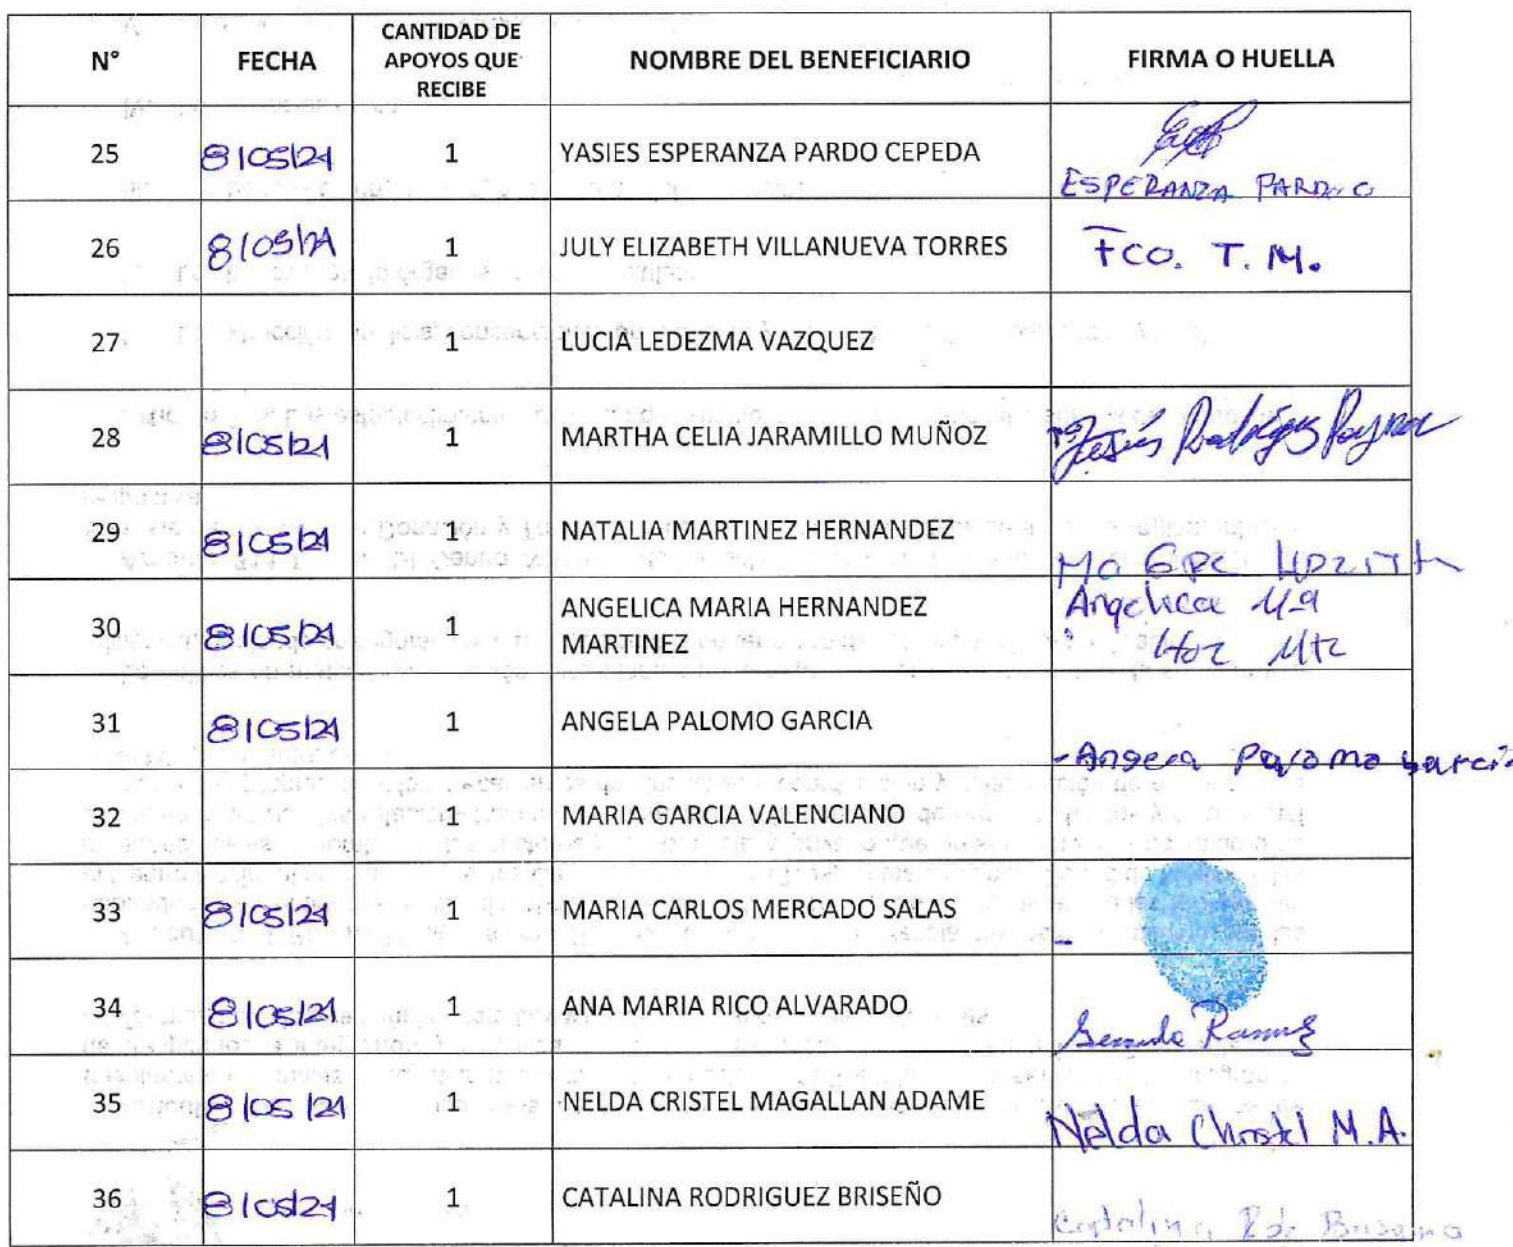 N° FECHA CANTIDAD DE APOYOS QUE RECIBE NOMBRE DEL BENEFICIARIO FIRMA O HUELLA
25 8/05/21 1 YASIES ESPERANZA PARDO CEPEDA ESPERANZA PARDO C
26 8/05/21 1 JULY ELIZABETH VILLANUEVA TORRES Fco. T. M.
27 1 LUCIA LEDEZMA VAZQUEZ
28 8/05/21 1 MARTHA CELIA JARAMILLO MUÑOZ Jesús Rodríguez
29 8/05/21 1 NATALIA MARTINEZ HERNANDEZ Ma Gpe
30 8/05/21 1 ANGELICA MARIA HERNANDEZ MARTINEZ Angelica Ma Hdz Mtz
31 8/05/21 1 ANGELA PALOMO GARCIA Angela Palomo Garcia
32 1 MARIA GARCIA VALENCIANO
33 8/05/21 1 MARIA CARLOS MERCADO SALAS
34 8/05/21 1 ANA MARIA RICO ALVARADO
35 8/05/21 1 NELDA CRISTEL MAGALLAN ADAME Nelda Christel M.A.
36 8/05/21 1 CATALINA RODRIGUEZ BRISEÑO Catalina Rdz Briseño